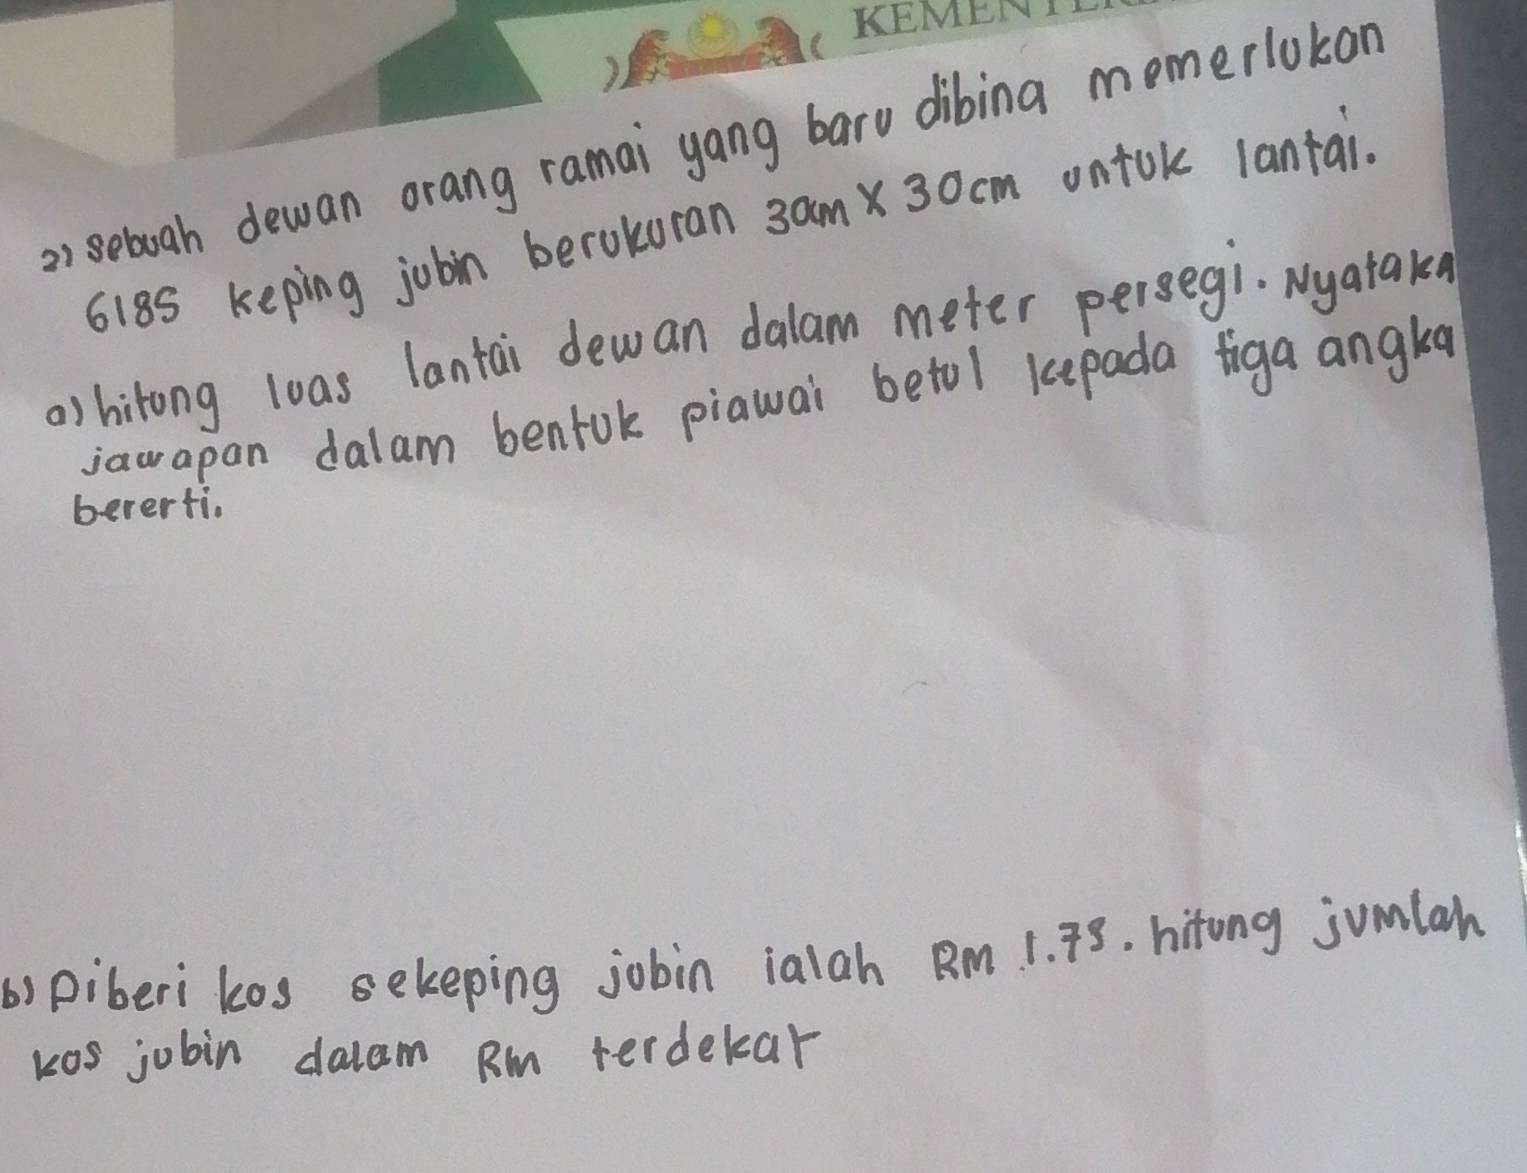 KEMEN
2) sebuah dewan orang ramai yang baru dibina memerlukan
6185 keping jubin berukuran 30cm x 30cm untuk lantai.
a) hitung luas lantai dewan dalam meter persegi. Nyatakan
jawapan dalam bentuk piawai betul kepada tiga angka
bererti.
b) Diberi kos sekeping jubin ialah RM 1.75. hitung jumlah
kos jubin dalam RM terdekat